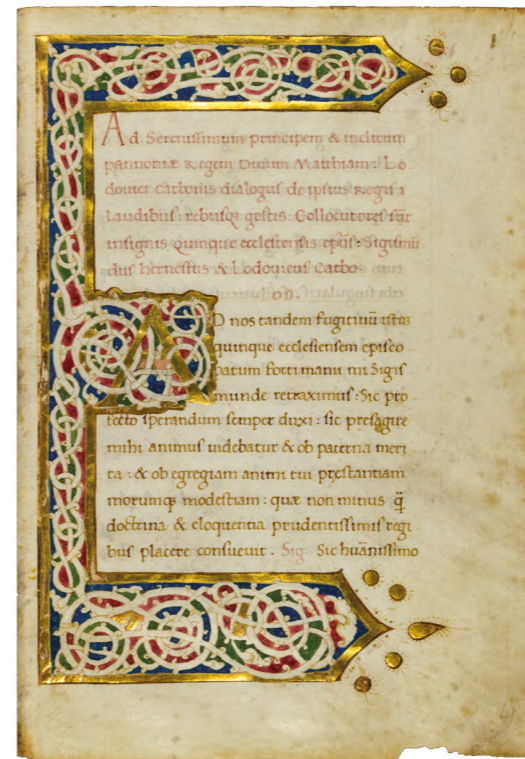 Ad Serenissimum principem & inclitum
pannoniæ Regem Diuum Mathiam: Lo
douici Carbonis dialogus de ipsius Regis
laudibus: rebusq; gestis: Collocutores sũt
insignis quinque ecclesiensis ep̃us: Sigismũ
dus hernestus & Lodouicus Carbo
AD nos tandem fugitiuũ istũ
quinque ecclesiensem episco
patum forti manu mi Sigis
munde retraximus: Sic pro
fecto sperandum semper duxi: sic presagire
mihi animus uidebatur & ob paterna meri
ta: & ob egregiam animi tui prestantiam
morumq; modestiam: quæ non minus q̃
doctrina & eloquentia prudentissimis regi
bus placere consueuit. Sig. Sic huãnissimo